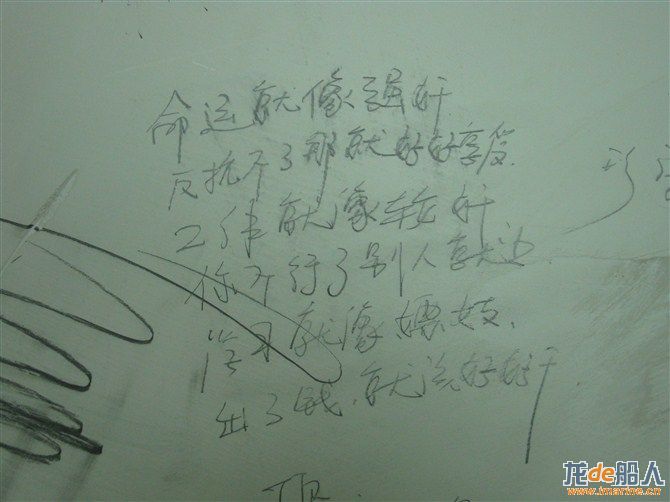 命运就像强奸
反抗不了那就好好享受
工作就像轮奸
你不行了别人就上
学习就像嫖妓
出了钱就没好好干
龙de船人
www.imarine.cn